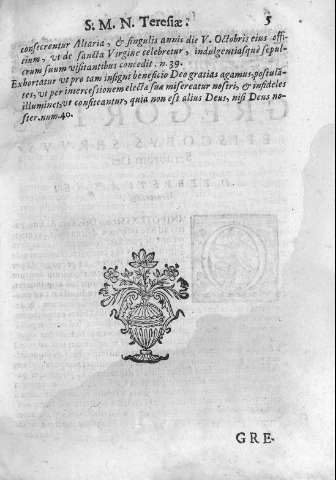 S. M. N. Teresiæ. 5
consecrentur Altaria, & singulis annis die V. Octobris eius offi-
cium, vt de sancta Virgine celebretur, indulgentiasque sepul-
crum suum visitantibus concedit. n. 39.
Exhortatur vt pro tam insigni beneficio Deo gratias agamus, postulā-
tes, vt per intercessionem electæ suæ misereatur nostri, & infideles
illuminet, vt confiteantur, quia non est alius Deus, nisi Deus no-
ster. num. 40.
GRE-